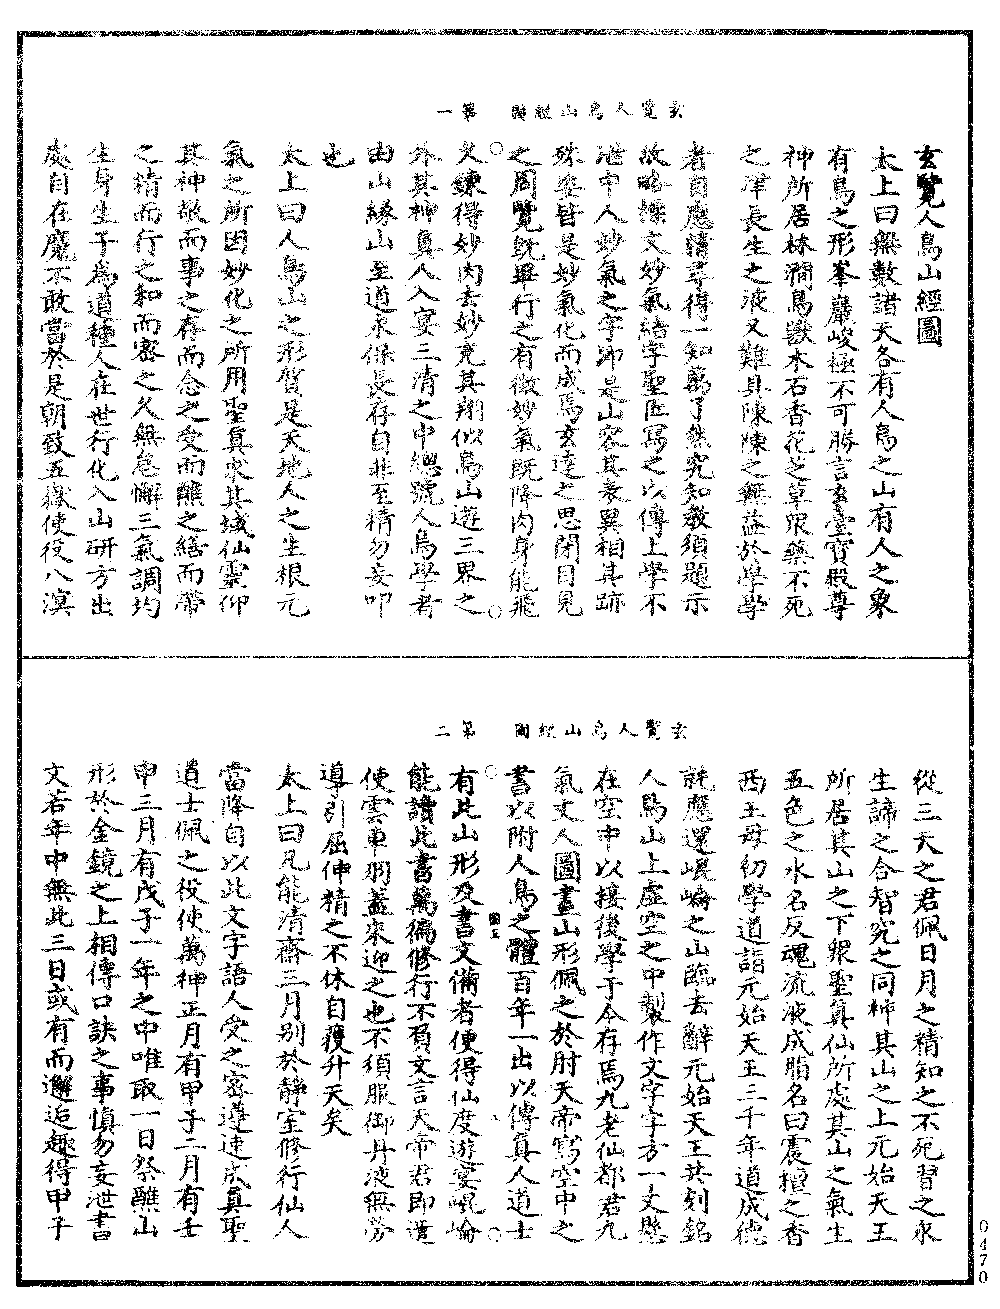 玄覽人鳥山經圖 第一
玄覽人鳥山經圖
太上曰無數諸天各有人鳥之山有人之象
有鳥之形峯巖峻極不可勝言玄臺寶殿尊
神所居林澗鳥獸木石香花芝草眾藥不死
之津長生之液又難具陳陳之無益於學學
者自應精尋得一知萬了然究知教須題示
故略標文妙氣結字聖匠寫之以傳上學不
泄中人妙氣之字即是山容其表異相其跡
殊姿皆是妙氣化而成焉玄達之思閉目見
之周覽既畢行之有徵妙氣既降肉身能飛
久鍊得妙肉去妙充其翔似鳥山遊三界之
外其神真人入宴三清之中總號人鳥學者
由山緣山至道永保長存自非至精勿妄叩
也
太上曰人鳥山之形質是天地人之生根元
氣之所因妙化之所用聖真求其域仙靈仰
其神敬而事之存而念之受而醮之繕而帶
之精而行之和而密之久無怠懈三氣調均
生身生子為道種人在世行化入山研方出
處自在魔不敢當於是朝致五嶽使役八溟
玄覽人鳥山經圖 第二
從三天之君佩日月之精知之不死習之永
生諦之合智究之同神其山之上元始天王
所居其山之下眾聖真仙所處其山之氣生
五色之水名反魂流液成脂名曰震檀之香
西王母初學道詣元始天王三千年道成德
就應還崐崘之山臨去辭元始天王共刻銘
人鳥山上虛空之中製作文字字方一丈懸
在空中以接後學于今存焉九老仙都君九
氣丈人圖畫山形佩之於肘天帝寫空中之
書以附人鳥之體百年一出以傳真人道士
有此山形及書文備者便得仙度遊宴崐崘
能讀此書萬徧修行不負文言天帝君即遣
使雲車羽蓋來迎之也不須服御丹液無勞
導引屈伸精之不休自獲升天矣
太上曰凡能清齋三月別於靜室修行仙人
當降自以此文字語人受之密遵速求真聖
道士佩之役使萬神正月有甲子二月有壬
申三月有戊子一年之中唯取一日祭醮山
形於金鏡之上相傳口訣之事慎勿妄泄書
文若年中無此三日或有而邂逅趣得甲子
0470